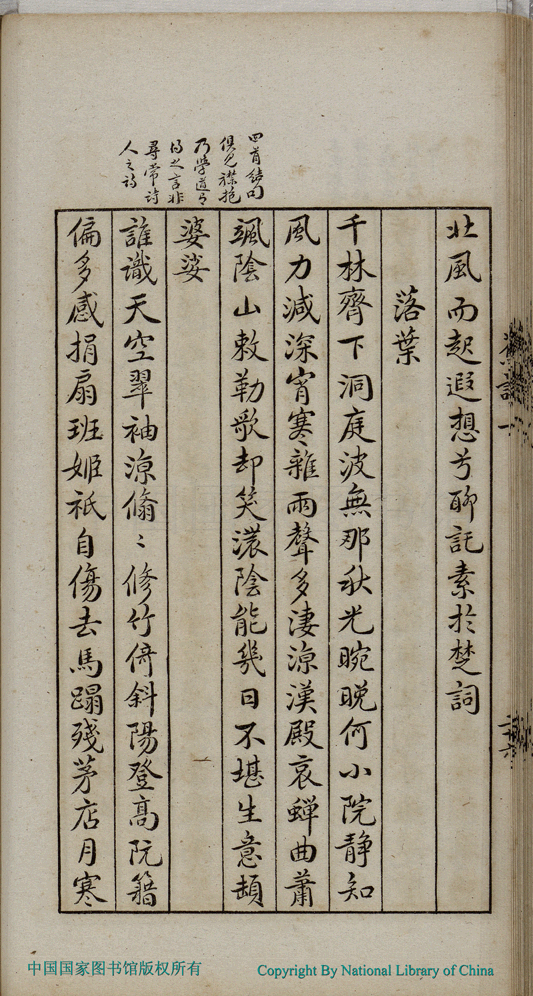 北風而起遐想兮聊託素於楚詞
落葉
千林齊下洞庭波無那秋光晼晚何小院静知
風力減深宵寒雜雨聲多淒涼漢殿哀蟬曲蕭
颯陰山敕勒歌却笑濃陰能幾日不堪生意頗
婆娑
誰識天空翠袖涼翛〻修竹倚斜陽登高阮籍
偏多感捐扇班姬祇自傷去馬蹋殘茅店月寒
四首結句
俱見襟抱
乃學道有
得之言非
尋常詩
人之詩
中国国家图书馆版权所有
Copyright By National Library of China